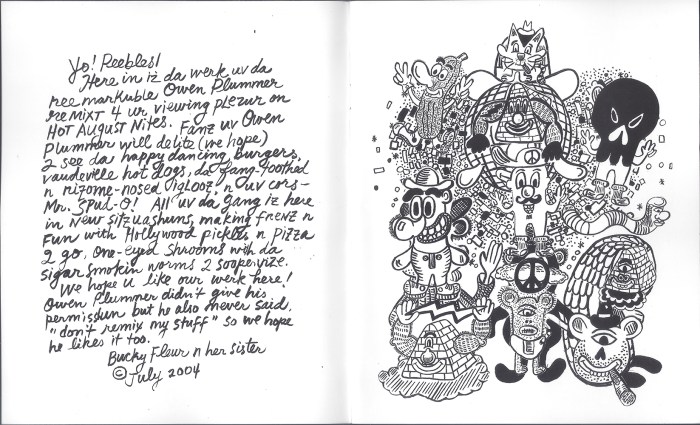 Yo! Peebles!
Here in iz da werk uv da
ree markuble Owen Plummer
reemixt 4 ur viewing plezur on
Hot August Nites. Fanz uv Owen
Plummer will delite (we hope)
2 see da happy dancing burgers,
vaudeville hot dogs, da fang-toothed
n rizome-nosed Iglooz, n uv cors-
Mr. Spud-O! All uv da gang iz here
in New sitzuashuns, making frenz n
Fun with Hollywood pickles n pizza
2 go, one-eyed shrooms with da
sigar smokin worms 2 soopervize.
We hope u like our werk here!
Owen Plummer didn't give his
permisshun but he also never said,
"don't remix my stuff" so we hope
he likes it too.
Bucky Fleur n her sister
© July 2004